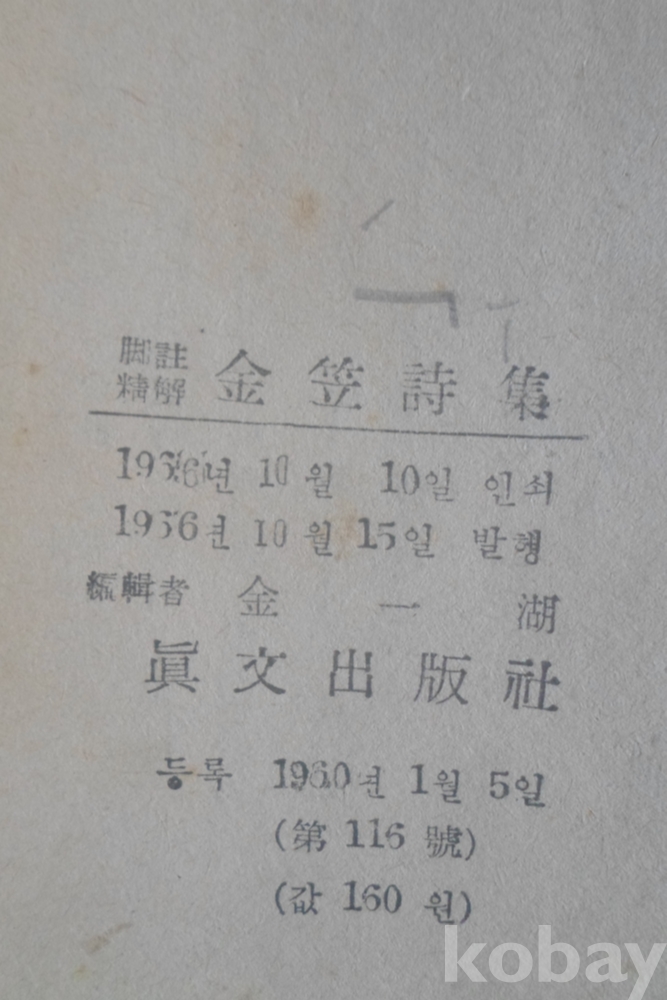 脚註
精解 金笠詩集
1966년 10월 10일 인쇄
1966년 10월 15일 발행
編輯者 金一湖
眞文出版社
등록 1960년 1월 5일
(第 116 號)
(값 160 원)
kobay